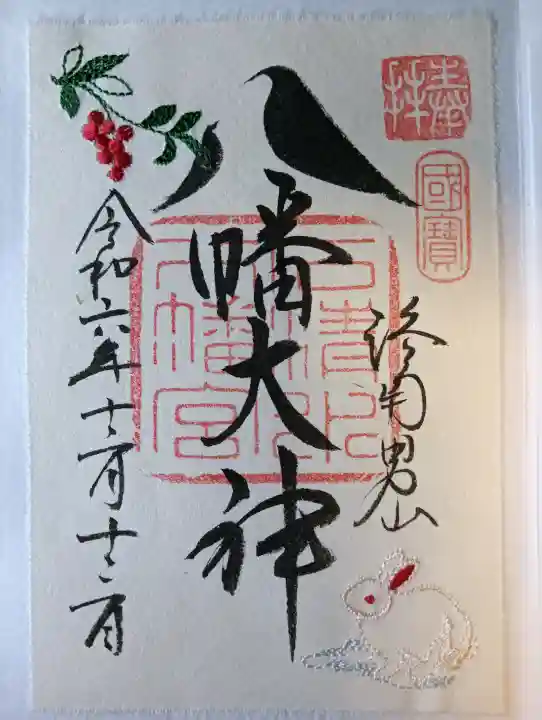 奉拝
國寶
洛南男山
八幡大神
石清水
八幡宮
令和六年十二月十二日